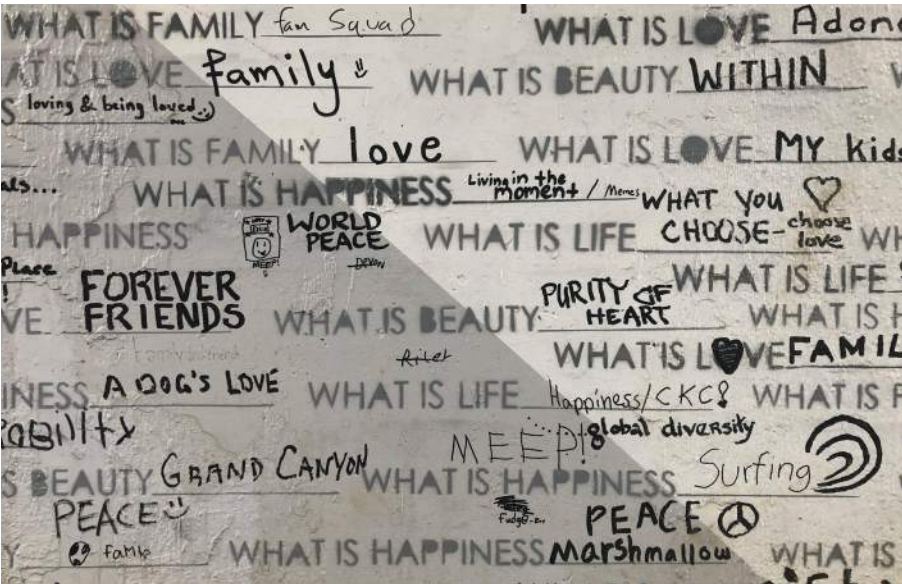 WHAT IS FAMILY fan Squad WHAT IS LOVE Adon
AT IS LOVE family WHAT IS BEAUTY WITHIN
S loving & being loved
WHAT IS FAMILY love WHAT IS LOVE MY kids
als...
WHAT IS HAPPINESS Living in the moment / Memes
HAPPINESS WORLD PEACE WHAT IS LIFE WHAT YOU CHOOSE- choose love WH
MEEP!
Place
!
FOREVER FRIENDS
WHAT IS LIFE
VE WHAT IS BEAUTY PURITY OF HEART WHAT IS H
WHAT IS LOVE FAMIL
INESS A DOG'S LOVE WHAT IS LIFE Happiness/CKC! WHAT IS F
ability
MEEP! global diversity
S BEAUTY GRAND CANYON WHAT IS HAPPINESS Surfing
PEACE
PEACE
Y WHAT IS HAPPINESS Marshmallow WHAT IS